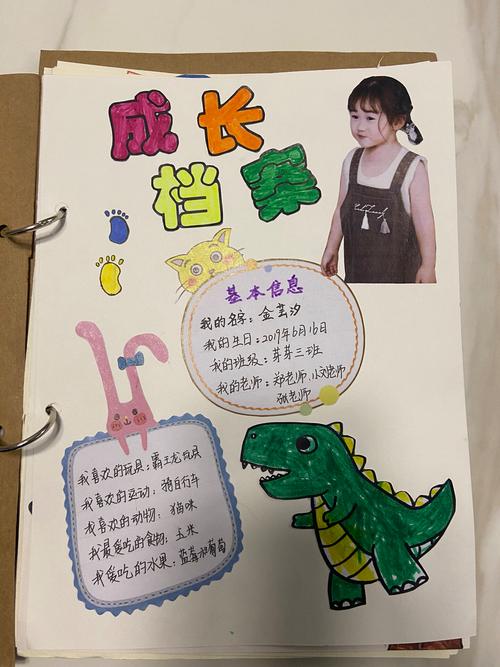 成长
档案
基本信息
我的名字：金芸汐
我的生日：2019年6月16日
我的班级：芽芽三班
我的老师：郑老师、小刘老师
张老师
我喜欢的玩具：霸王龙玩具
我喜欢的运动：骑自行车
我喜欢的动物：猫咪
我最爱吃的食物：玉米
我爱吃的水果：蓝莓和葡萄